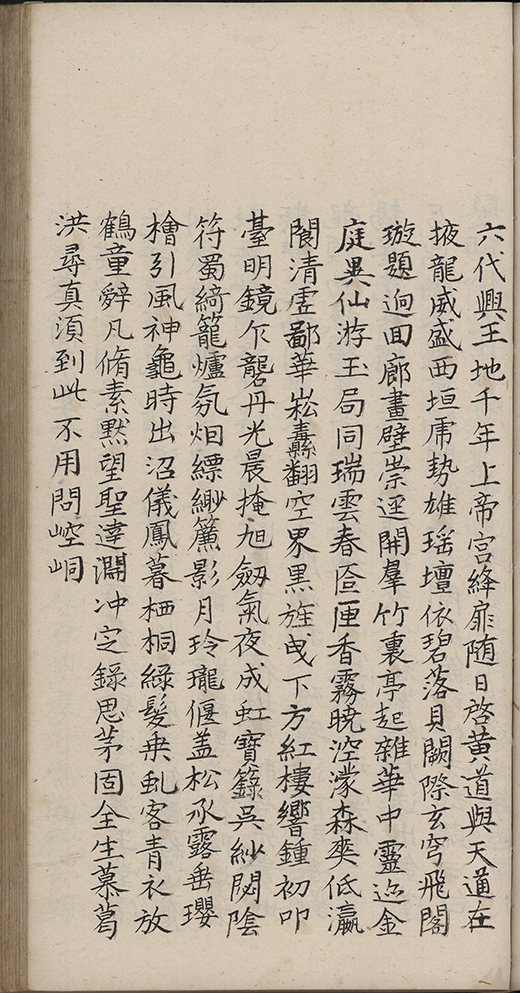 六代興王地千年上帝宮絳扉随日啓黄道與天通在
掖龍威盛西垣虎勢雄瑶壇依碧落貝闕際玄穹飛閣
璇題逈回廊畫壁崇逕開羣竹裏亭起雜華中靈迹金
庭異仙游玉局同瑞雲春匼匝香霧曉涳濛森奕低瀛
閬清虚鄙華崧纛翻空界黒旌曵下方紅樓響鍾初叩
臺明鏡乍礱丹光晨掩旭劔氣夜成虹寶籙吴紗閟陰
符蜀綺籠爐氛烟縹緲簾影月玲瓏偃盖松承露垂瓔
檜引風神龜時出沼儀鳳暮栖桐緑髪乗虬客青衣放
鶴童辤凡脩素黙望聖達淵冲定録思茅固全生慕葛
洪尋真須到此不用問崆峒